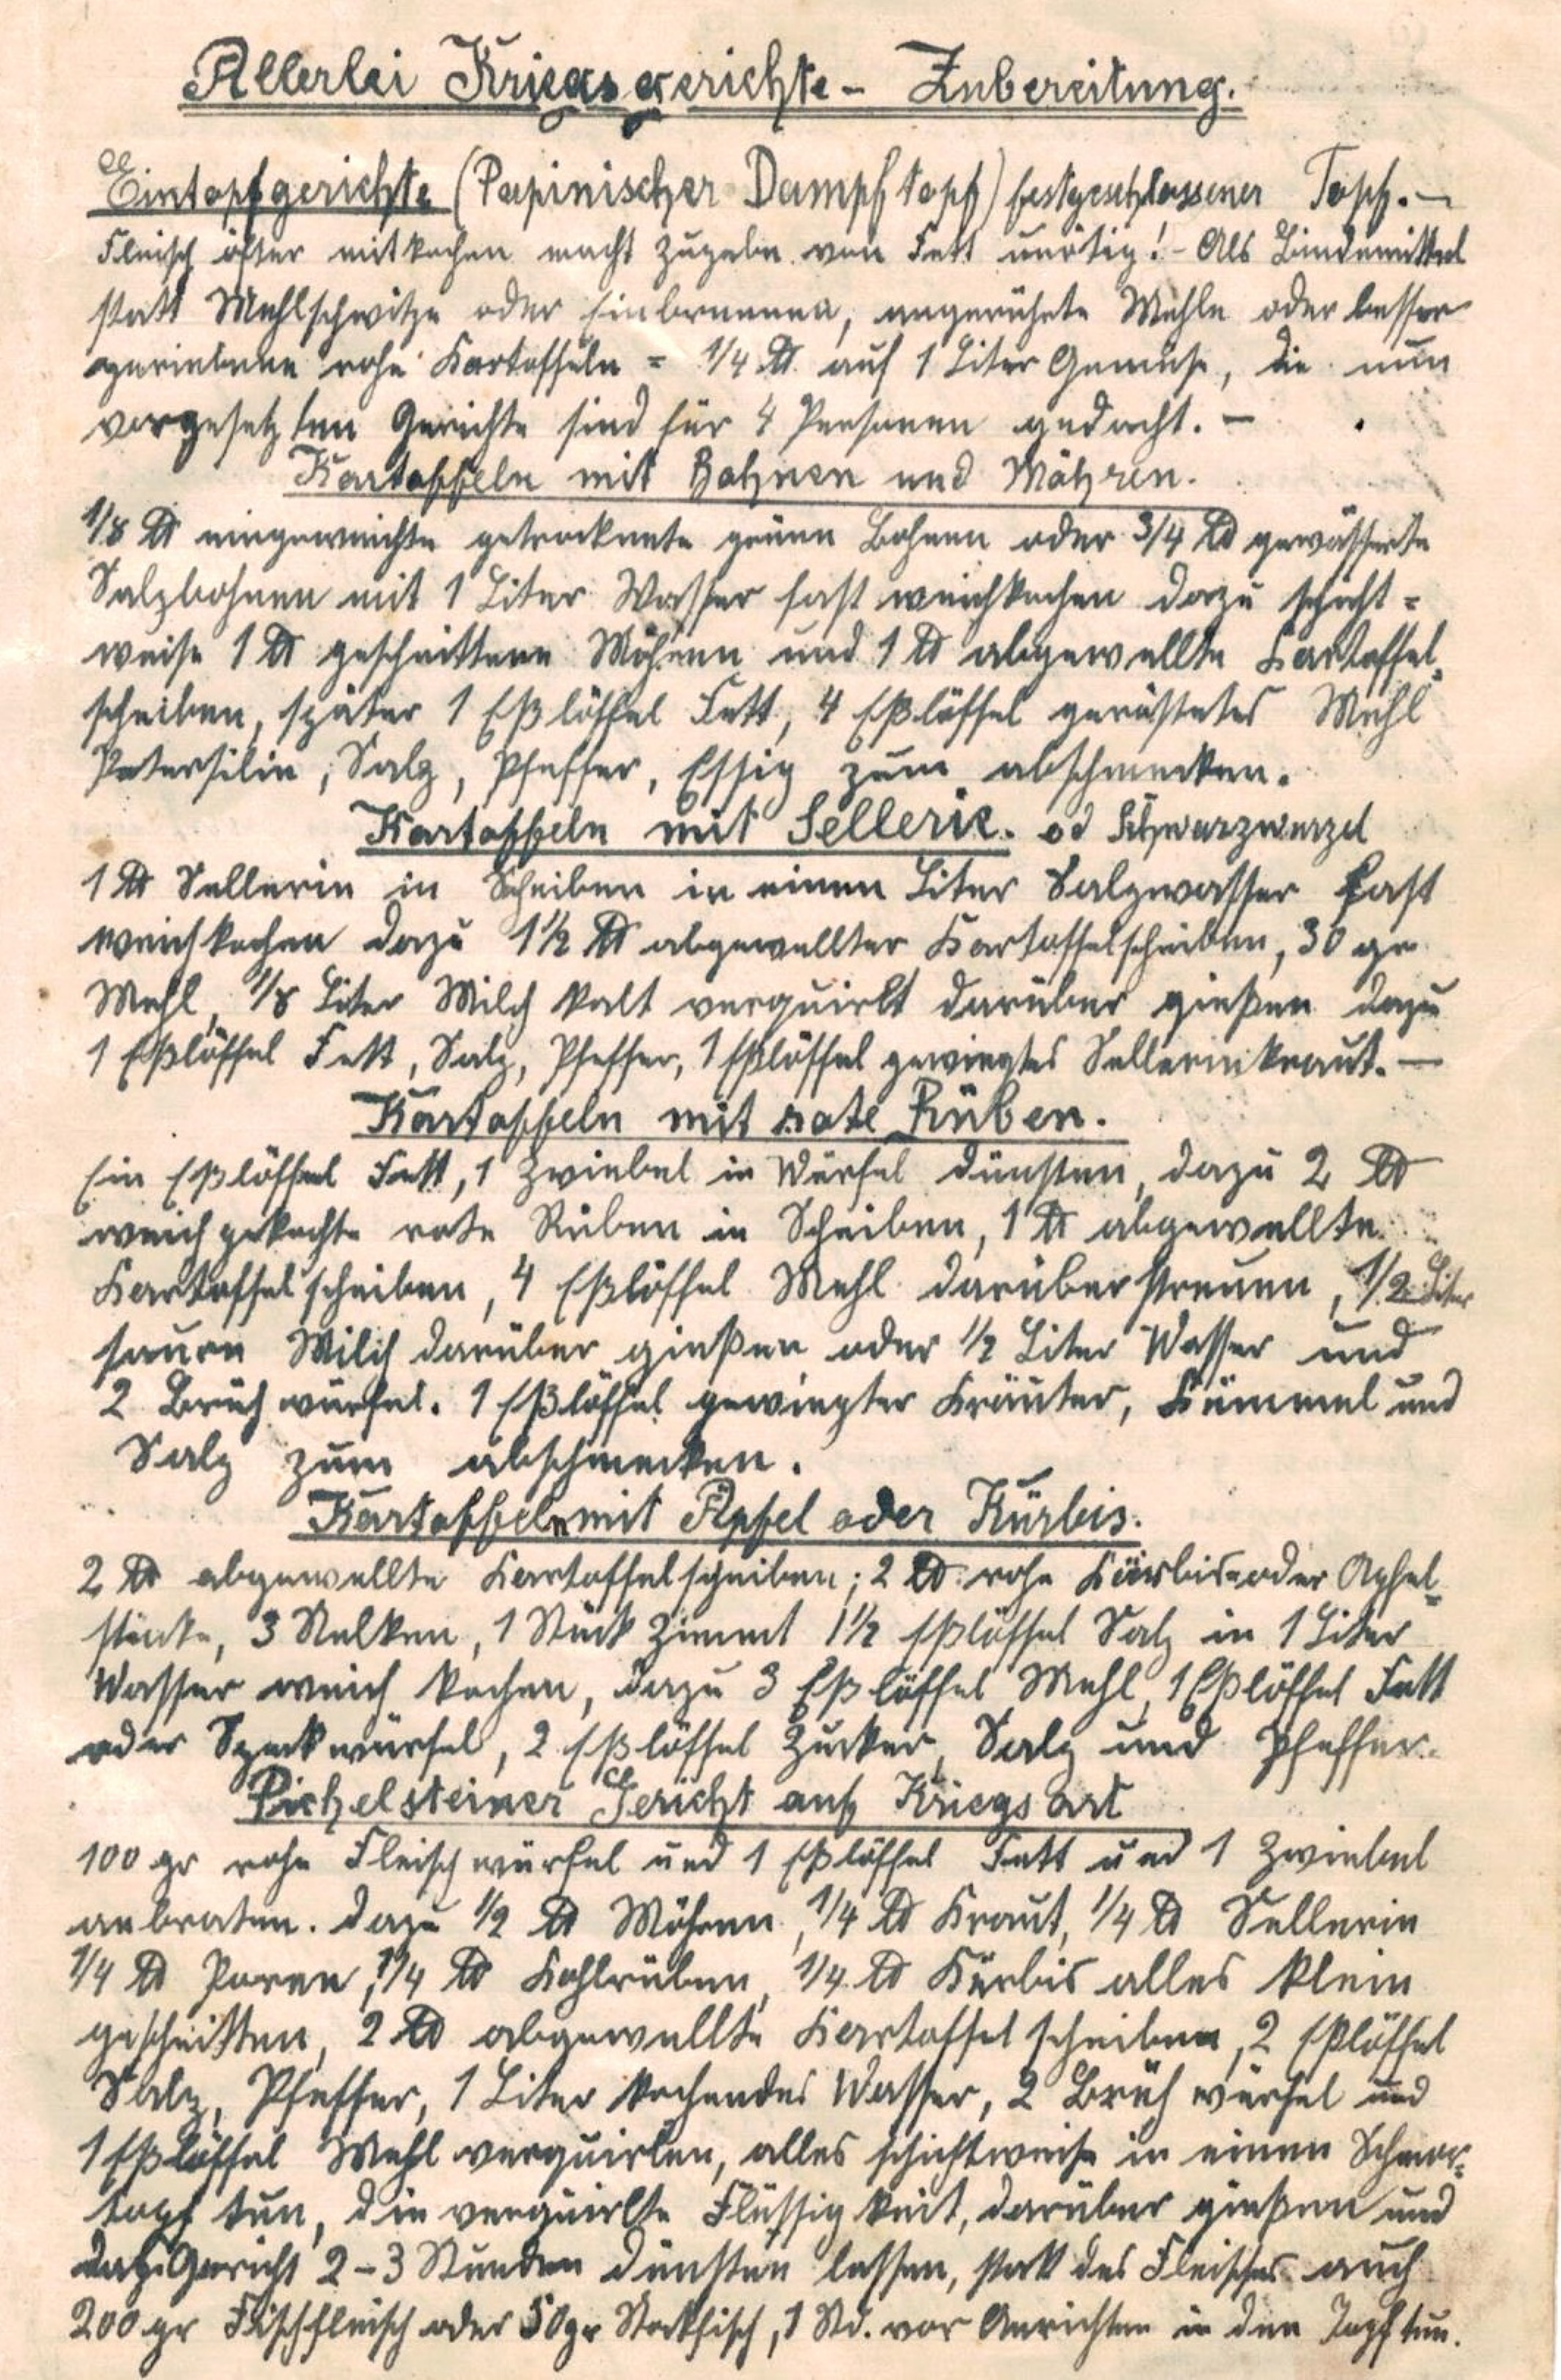 Allerlei Kriegsgerichte - Zubereitung.
Eintopfgerichte (Papinischer Dampftopf) festgeschlossener Topf. -
Fleisch öfter mitkochen macht Zugabe von Fett unötig! - Als Bindemittel
statt Mehlschwitze oder Einbrennen, angerührte Mehle oder besser
geriebene rohe Kartoffeln = 1/4 ℔ auf 1 Liter Gemüse, die nun
vorgesetzten Gerichte sind für 4 Personen gedacht. -
Kartoffeln mit Bohnen und Möhren.
1/8 ℔ eingeweichte getrocknete grüne Bohnen oder 3/4 ℔ gewässerte
Salzbohnen mit 1 Liter Wasser fast weichkochen dazu schicht=
weise 1 ℔ geschnittene Möhren und 1 ℔ abgewellte Kartoffel=
scheiben, später 1 Eßlöffel Fett, 4 Eßlöffel geröstetes Mehl
Petersilie, Salz, Pfeffer, Essig zum abschmecken.
Kartoffeln mit Sellerie. od Schwarzwurzel
1 ℔ Sellerie in Scheiben in einen Liter Salzwasser fast
weichkochen dazu 1½ ℔ abgewellter Kartoffelscheiben, 30 gr
Mehl, 1/8 Liter Milch kalt verquirlt darüber gießen dazu
1 Eßlöffel Fett, Salz, Pfeffer, 1 Eßlöffel gewiegtesSelleriekraut. -
Kartoffeln mit rote Rüben.
Ein Eßlöffel Fett, 1 Zwiebel in Würfel dünsten, dazu 2 ℔
weichgekochte rote Rüben in Scheiben, 1 ℔ abgewellte
Kartoffelscheiben, 4 Eßlöffel Mehl darüberstreuen, 1/2 Liter
sauren Milch darüber gießen oder 1/2 Liter Wasser und
2 Brühwürfel. 1 Eßlöffel gewiegter Kräuter, Kümmel und
Salz zum abschmecken.
Kartoffeln mit Äpfel oder Kürbis.
2 ℔ abgewellte Kartoffelscheiben; 2 ℔ rohe Kürbis=oder Apfel=
stücke, 3 Nelken, 1 Stück Zimmt 1½ Eßlöffel Salz in 1 Liter
Wasser weich kochen, dazu 3 Eßlöffel Mehl, 1 Eßlöffel Fett
oder Speckwürfel, 2 Eßlöffel Zucker, Salz und Pfeffer.
Pichelsteiner Gericht auf Kriegsart
100 gr rohe Fleischwürfel und 1 Eßlöffel Fett und 1 Zwiebel
anbraten. dazu 1/2 ℔ Möhren, 1/4 ℔ Kraut, 1/4 ℔ Sellerie
1/4 ℔ Poree, 1/4 ℔ Kohlrüben, 1/4 ℔ Kürbis alles klein
geschnitten, 2 ℔ abgewellte Kartoffelscheiben, 2 Eßlöffel
Salz, Pfeffer, 1 Liter kochendes Wasser, 2 Brühwürfel und
1 Eßlöffel Mehl verquirlen, alles schichtweise in einen Schmor=
topf tun, die verquirlte Flüssigkeit, darüber gießen und
daz Gericht 2-3 Stunden dünsten lassen, statt des Fleisches auch
200 gr Fischfleisch oder 50 gr Stockfisch, 1 Std. vor Anrichten in den Topf tun.